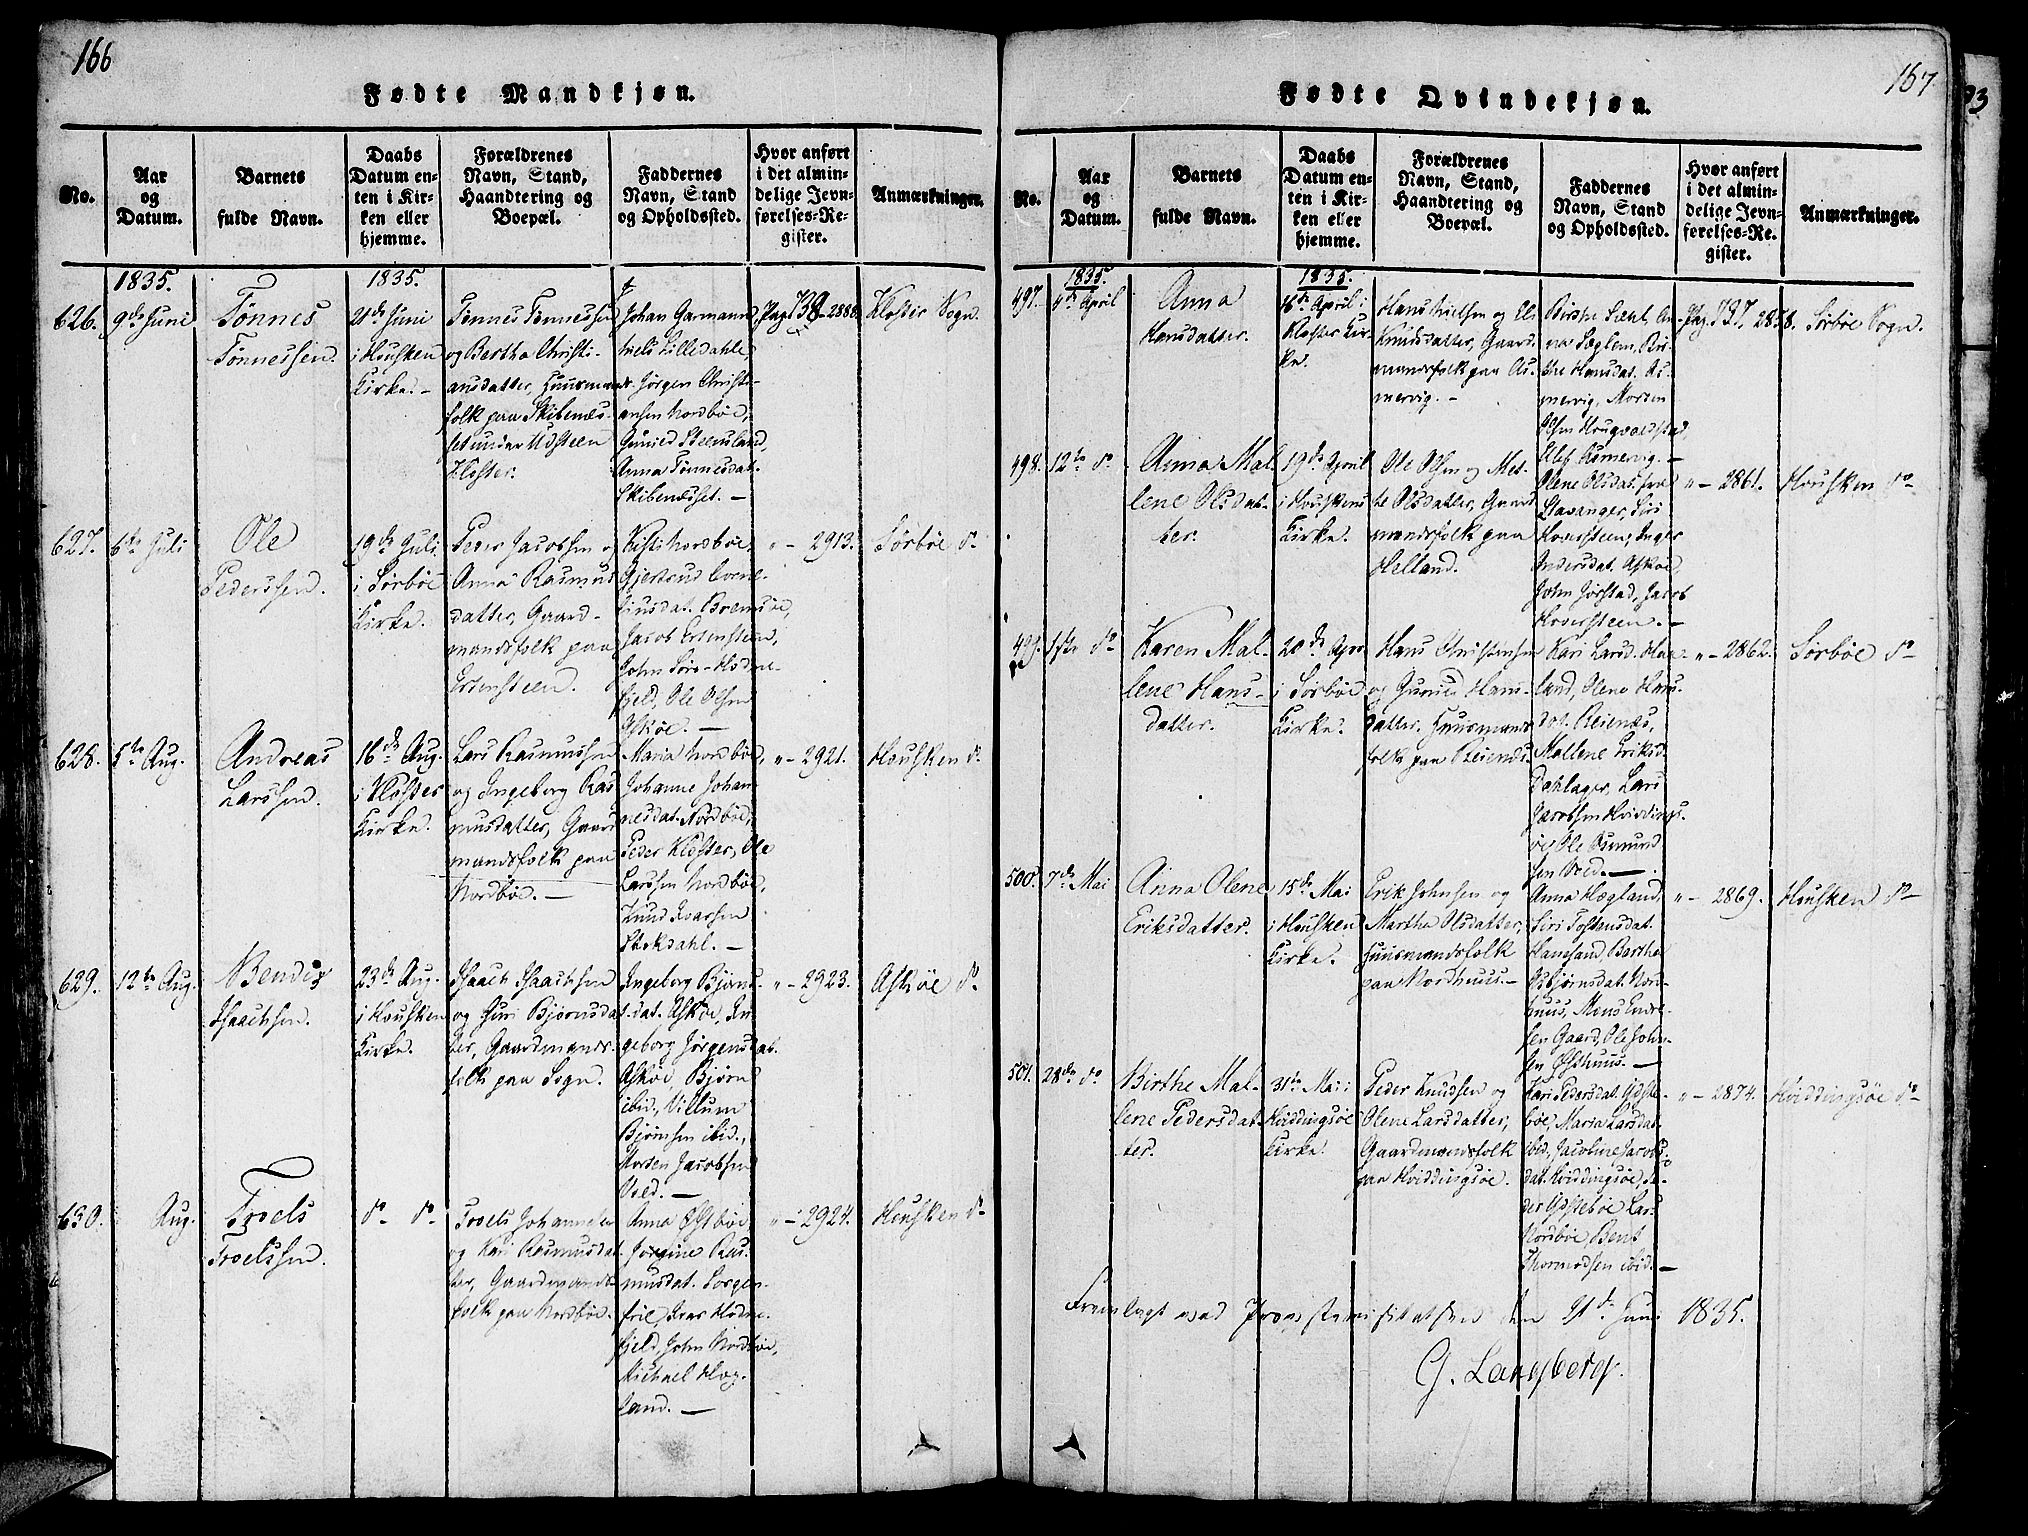 166
Fødte Mandkjøn.
No.
Aar
og
Datum.
Barnets
fulde Navn.
Daabs
Datum en-
ten i Kir-
ken eller
hjemme.
Forældrenes
Navn, Stand,
Haandtering og
Boepæl.
Faddernes
Navn, Stand
og Opholdssted.
Hvor anført
i det almin-
delige Jevn-
førelses-Re-
gister.
Anmærkninger.
1835.
626.
9de Juni
Tønnes
Tønnessen.
1835.
21de Juni
i Housken
Kirke. -
Tønnes Tønnessen
og Bertha Christi-
ansdatter, Huusmands-
folk paa Skibenæs-
set under Udsteen
Kloster.
Johan Garmann,
Niels Lilledahle,
Jørgen Christi-
ansen Nordbøe,
Gunild Steensland,
Anna Tønnesdat.
Skibenæsset. -
Pag. 739-2888.
Kloster Sogn.
627.
6te Juli
Ole
Pederssen.
19de Juli
i Sørbøe
Kirke.
Peder Jacobsen og
Anna Rasmus
datter, Gaard-
mandsfolk paa
Ersensteen.
Kisti Nordbøe,
Gjertrud Corne-
liusdat. Bremsøe,
Jacob Ersensteen,
John Søre-Hodne-
fjeld, Ole Olsen
Askøe. -
" - 2913.
Sørbøe do
628.
5te Aug.
Andreas
Larssen.
16de Aug.
i Kloster
Kirke.
Lars Rasmussen
og Ingeborg Ras
musdatter, Gaard
mandsfolk paa
Nordbøe. -
Maria Nordbøe,
Johanne Johan-
nesdat. Nordbøe,
Peder Kloster, Ole
Larssen Nordbøe,
Knud Ivarssen
Stoksdahl. -
" - 2921.
Housken do
629.
12te Aug.
Bendix
Isaachsen.
23de Aug.
i Housken
Kirke.
Isaach Isaachsen
og Guri Bjørnsdat-
ter, Gaardmands-
folk paa Sogn.
Ingeborg Bjørns-
dat. Askøe, In-
geborg Jørgensdat.
Askøe, Bjørn
ibid., Villum
Bjørnsen ibid.,
Morten Jacobsen
Vold. -
" - 2923.
Askøe do
630.
Aug.
Troels
Troelssen.
do do
Troels Johannesen
og Kari Rasmusdat-
ter, Gaardmands-
folk paa Nordbøe.
Anna Østbøe
Jørgine Ras-
musdat. Sorgen-
frie, Ivar Hodne-
fjeld, John Nordbøe,
Michael Hog-
land. -
" - 2924.
Housken do
167
Fødte Qvindekjøn.
No.
Aar
og
Datum.
Barnets
fulde Navn.
Daabs
Datum en-
ten i Kir-
ken eller
hjemme.
Forældrenes
Navn, Stand,
Haandtering og
Boepæl.
Faddernes
Navn, Stand
og Opholdssted.
Hvor anført
i det almin-
delige Jevn-
førelses-Re-
gister.
Anmærkninger.
1835.
497.
4de April
Anna
Hansdatter.
1835.
16de April i
Kloster Kir-
ke.
Hans Nielsen og Eli
Knudsdatter, Gaard-
mandsfolk paa As-
mervig. -
Birthe
na Sæglem, Bir-
the Hansdat. As-
mervig, Morten
Olsen Hougvaldstad,
Alef Asmervig. -
Pag. 737, 2858.
Sørbøe Sogn.
498.
12te do
Anna Mal-
lene Olsdat-
ter.
19de April
i Houskens
Kirke.
Ole Olsen og Met-
te Olsdatter, Gaard
mandsfolk paa
Helland.
Olene Olsdat. fra
Stavanger, Siri
Hoversteen, Inger
Andersdat. Askøe,
John Jørstad, Jacob
Hoversteen. -
" - 2861.
Housken do
499.
do
Karen Mal-
lene Hans-
datter.
20de Apr.
i Sørbøe
Kirke.
Hans Christensen
og Gunild Hans-
datter, Huusmands
folk paa Reienæs.
Kari Larsd. Haa-
land, Olene Hans-
dat. Reienæs,
Mallene Eriksd.
Dahlager, Lars
Jacobsen Hviddings-
øe Ole Osmund
sen Vold. -
" - 2862.
Sørbøe do
500.
7de Mai
Anna Olene
Eriksdatter.
15de Mai
i Housken
Kirke.
Erik Johnsen og
Martha Olsdatter,
Huusmandsfolk
paa Nordhuus. -
Anna Hogland,
Siri Tostensdat.
Hanasand, Berthe
Asbjørnsdat. Nord-
huus, Mons Endre-
sen Gaard, Ole John-
sen Østhuus. -
" - 2869.
Housken do
501.
28de do
Birthe Mal-
lene Pedersdat-
ter.
31te Mai i
Hviddingsøe
Kirke.
Peder Knudsen og
Olene Larsdatter,
Gaardmandsfolk
paa Hviddingsøe.
Kari Pedersdat. Ydste-
bøe, Maria Larsdat.
ibid, Jacobine Jacobs-
dat. Hviddingsøe, Pe-
der Ydstebøe Lars
Nordbøe, Bent
Thormodsen ibid. -
" - 2874.
Hviddingsøe do
Fremlagt ved Provstevisitatsen den 21de Juni 1835.
G. Langberg.